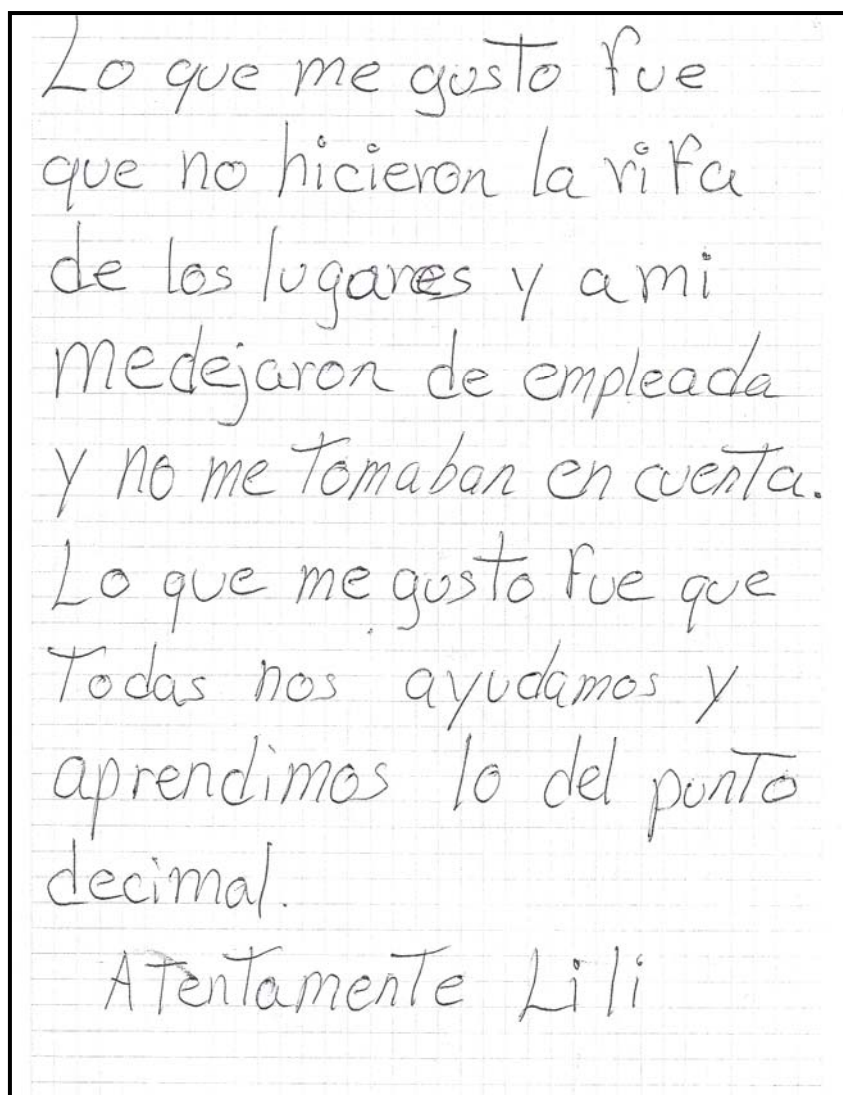 Lo que me gusto fue
que no hicieron la rifa
de los lugares y a mi
medejaron de empleada
y no me tomaban en cuenta.
Lo que me gusto fue que
Todas nos ayudamos y
aprendimos lo del punto
decimal.
Atentamente Lili